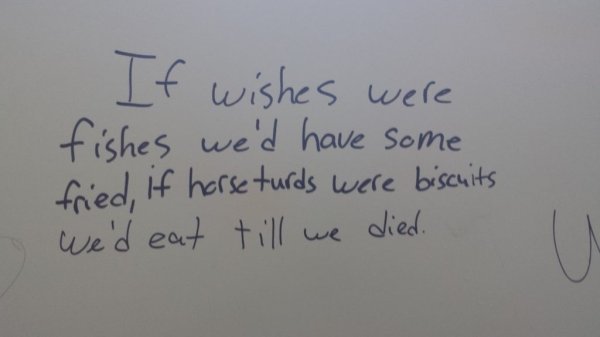 If wishes were
fishes we'd have some
fried, if horse turds were biscuits
we'd eat till we died.